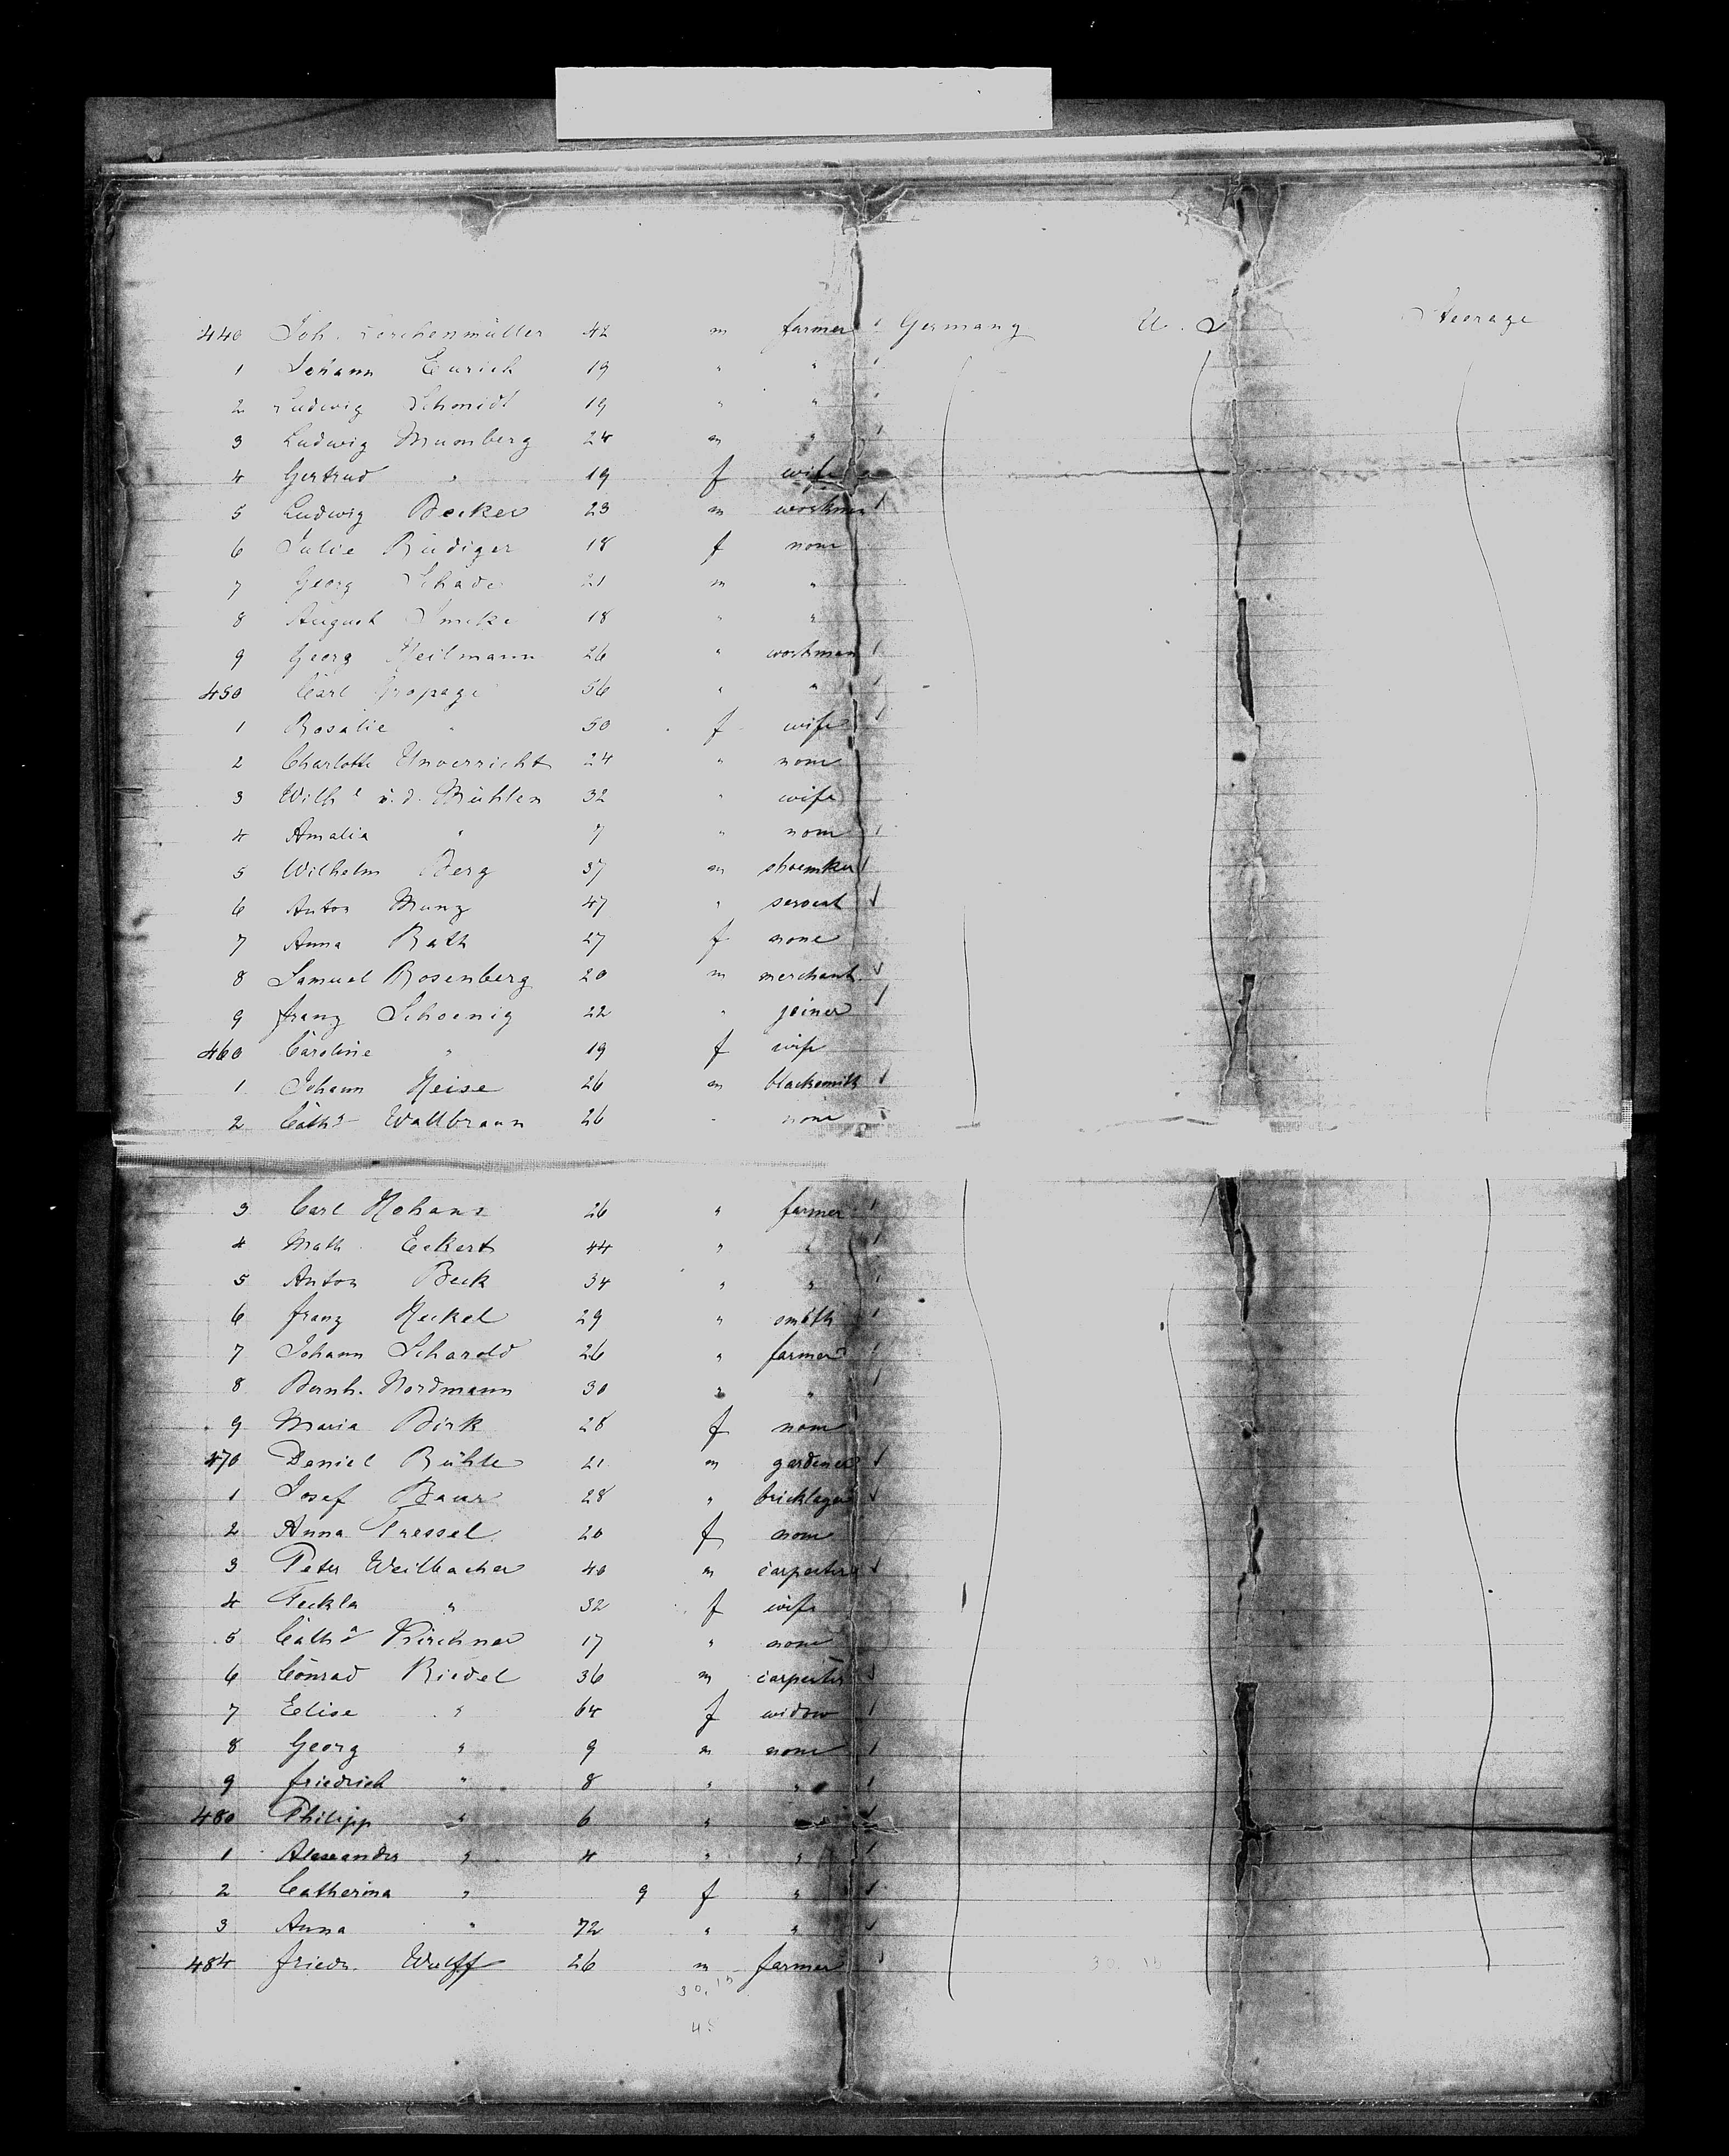 440 Joh. Lerchenmüller 42 m farmer Germany U. S Steerage
1 Johann Eurich 19 " "
2 Ludwig Schmidt 19 " "
3 Ludwig Mumberg 24 m "
4 Gertrud " 19 f wife
5 Ludwig Becker 23 m workman
6 Julie Rüdiger 18 f none
7 Georg Schade 21 m "
8 August 18 " "
9 Georg Heilmann 26 " workman
450 Carl Gropage 56 " "
1 Rosalie " 50 f wife
2 Charlotte Unverricht 24 " none
3 Wilhe v. d. Mühlen 32 " wife
4 Amalia " 7 " none
5 Wilhelm Berg 37 m shoemker
6 Anton Munz 47 " servant
7 Anna Rath 27 f none
8 Samuel Rosenberg 20 m merchant
9 Franz Schoenig 22 " joiner
460 Caroline " 19 f wife
1 Johann Heise 26 m blacksmith
2 Catha Wallbraun 26 - none
3 Carl Hohans 26 " farmer
4 Math. Eckert 44 " "
5 Anton Beck 34 " "
6 Franz Heckel 29 " smith
7 Johann Schardd 26 " farmer
8 Bernh. Nordmann 30 " "
9 Maria Birk 28 f none
470 Daniel Rühle 21 m gardener
1 Josef Baur 28 " bricklayer
2 Anna Tressel 20 f none
3 Peter Weilbacher 40 m carpenter
4 Teckla " 32 f wife
5 Catha Kirchner 17 " none
6 Conrad Riedel 36 m carpenter
7 Elise " 64 f widow
8 Georg " 9 m none
9 Friedrich " 8 " "
480 Philipp " 6 "
1 Alexander " 4 " "
2 Catherina " 9 f "
3 Anna " 72 " "
484 Friedr. Wulff 26 m farmer 30. 15
30. 15